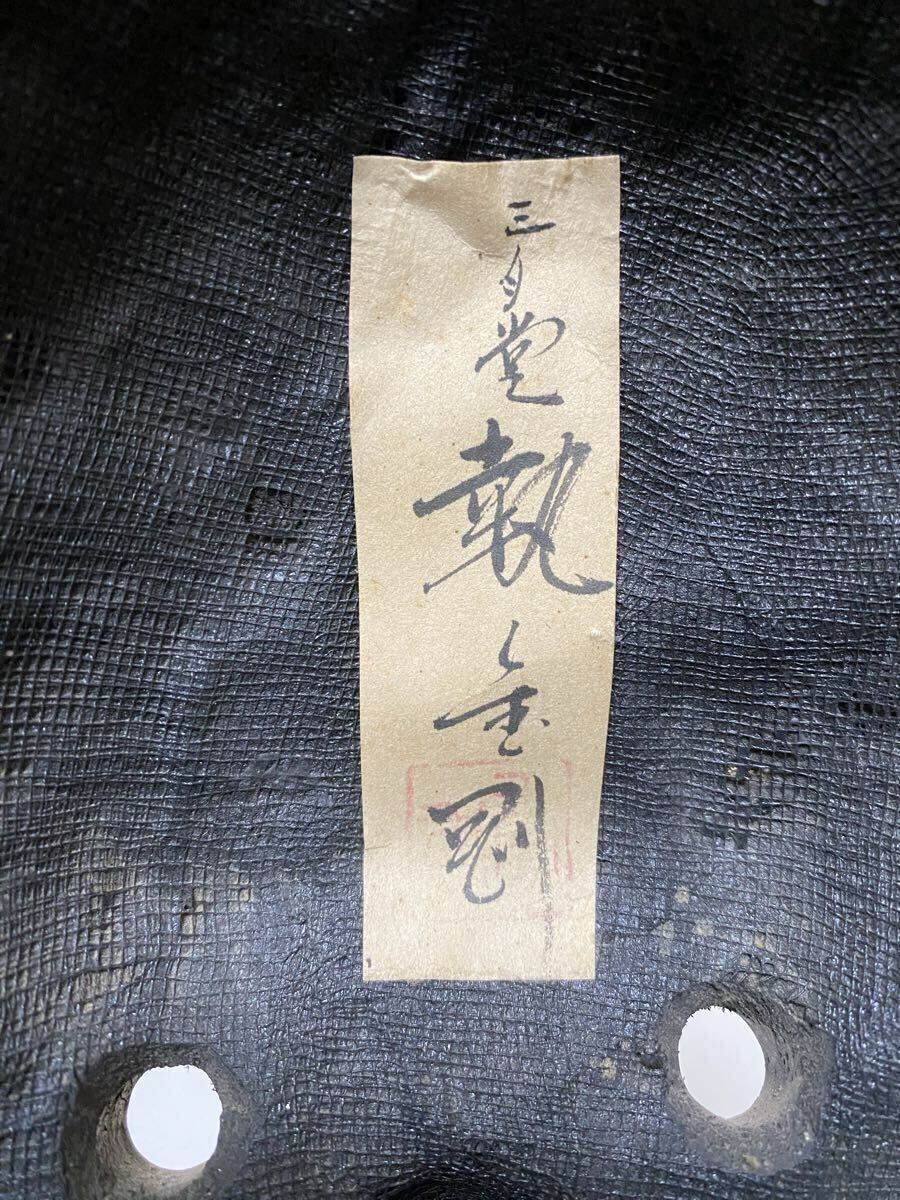 三月堂執金剛